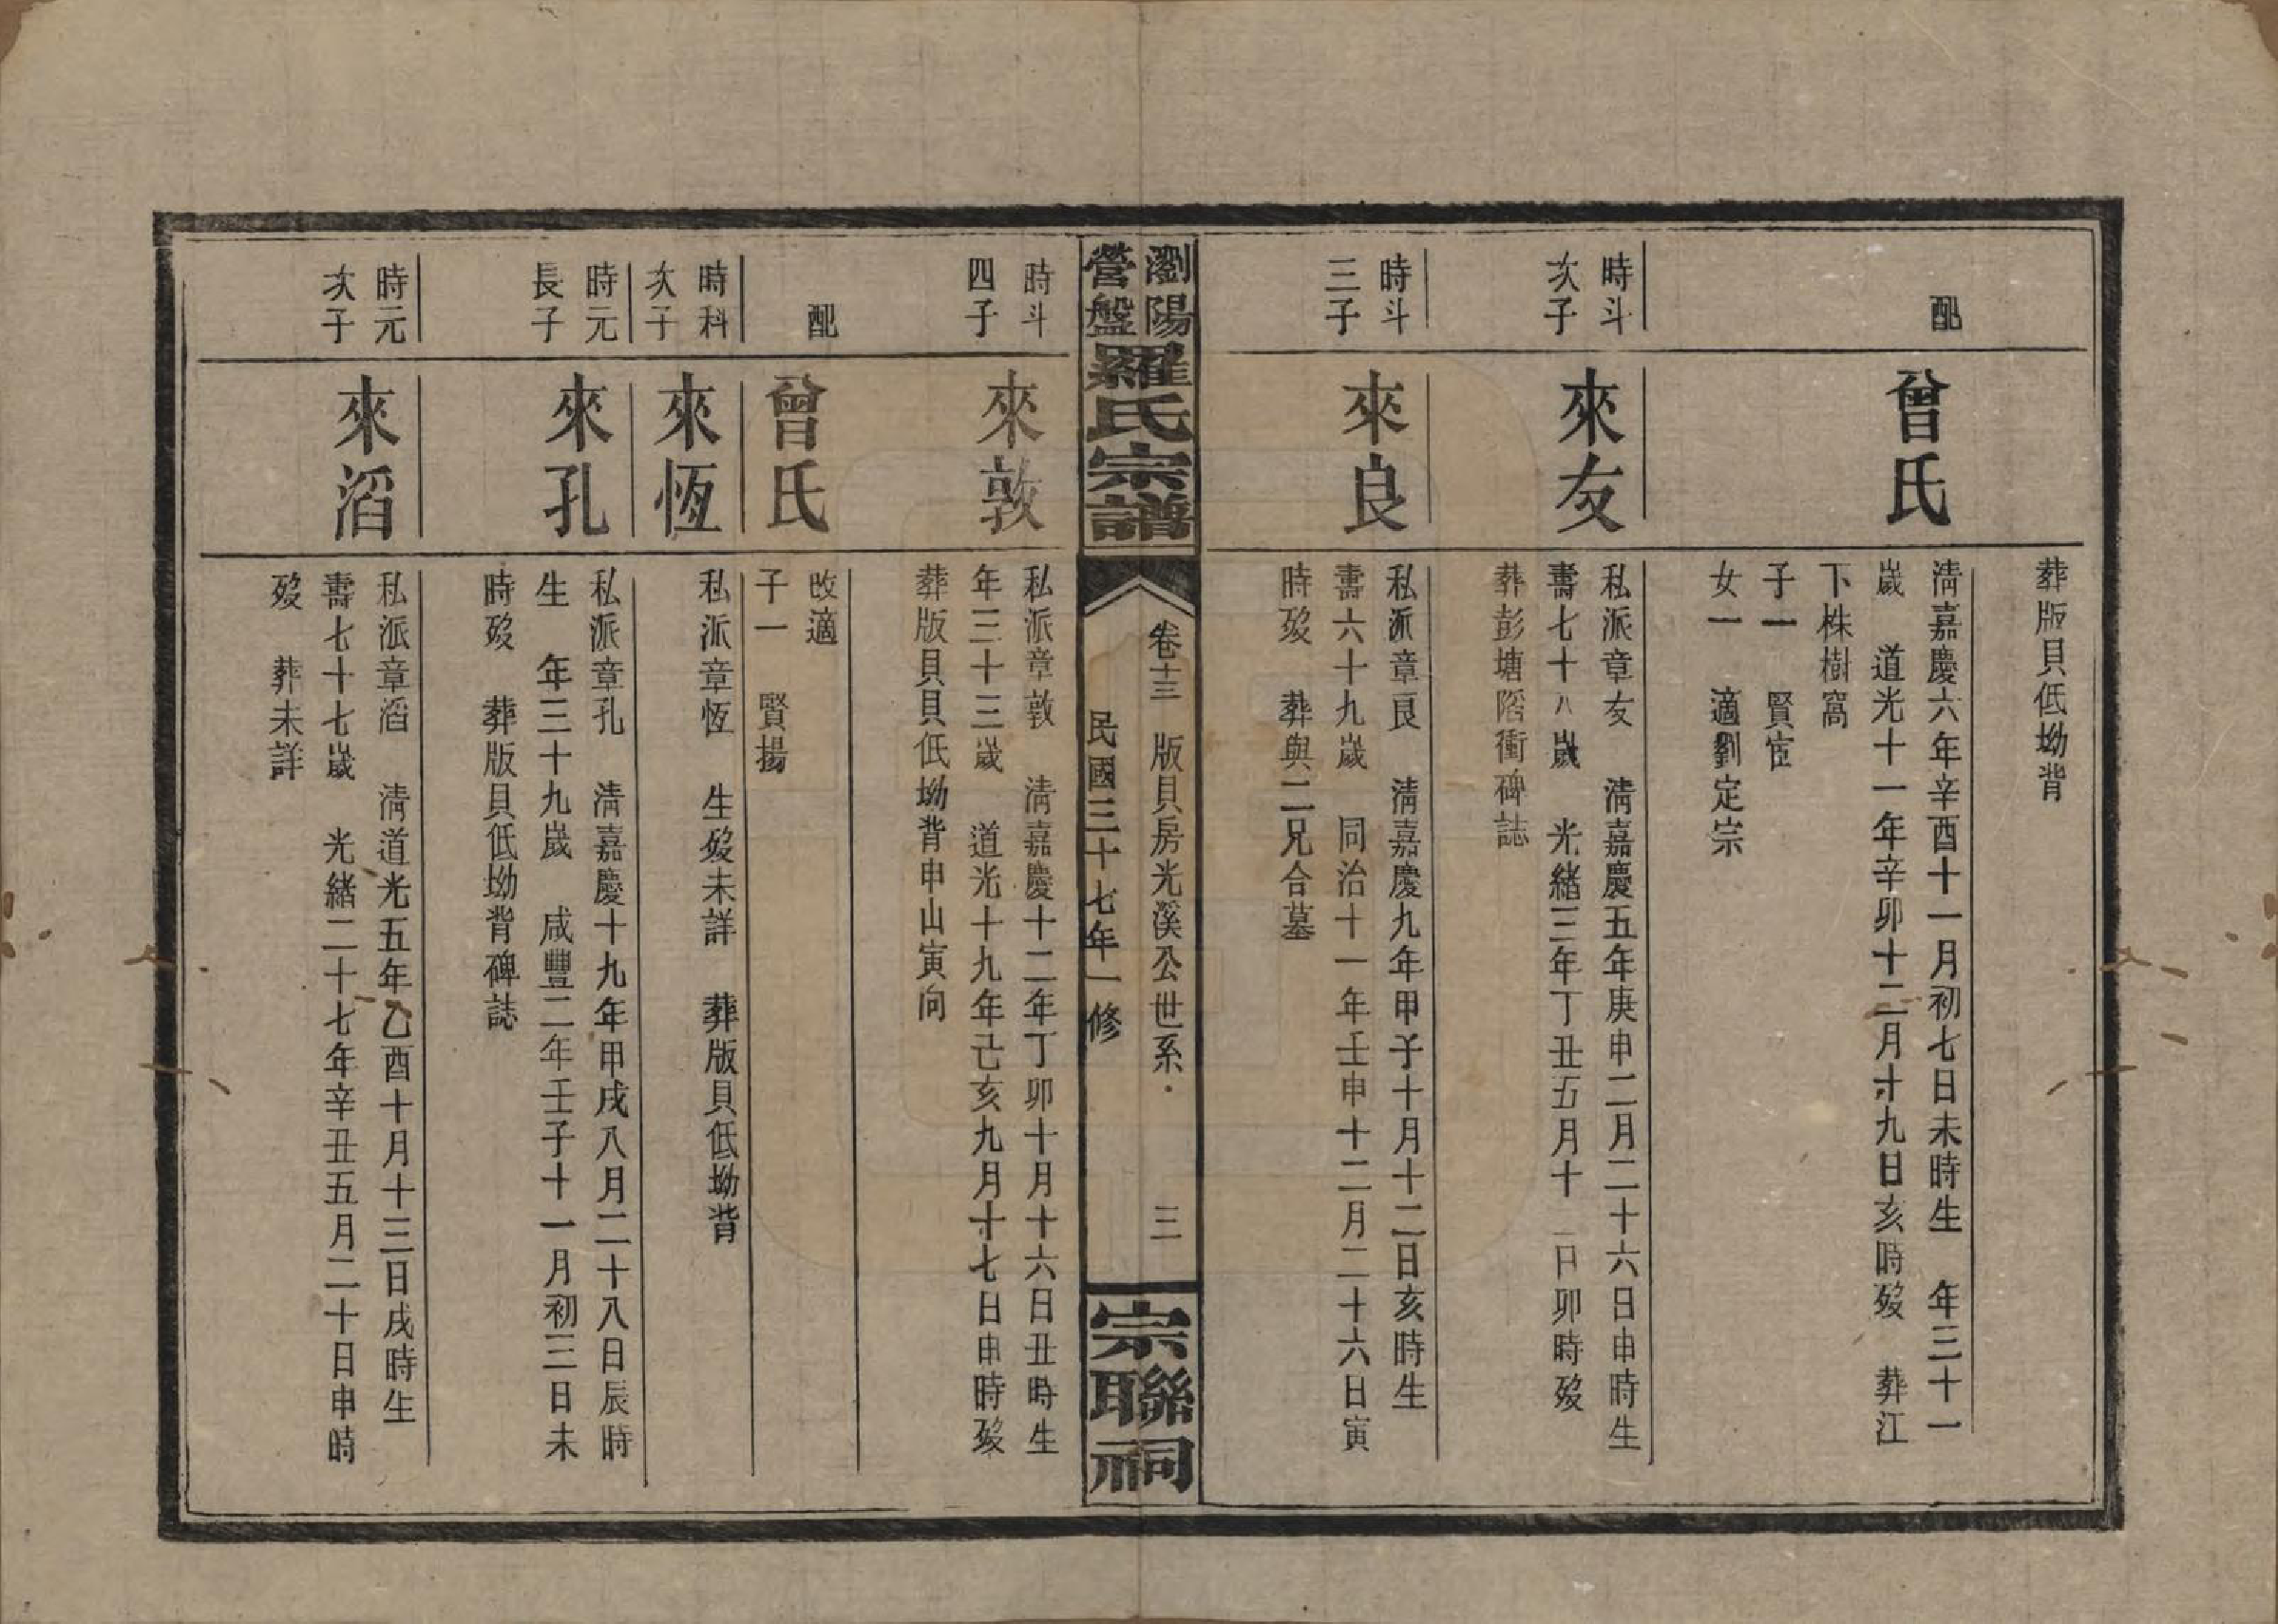 葬版貝低坳背
配
曾氏
淸嘉慶六年辛酉十一月初七日未時生　年三十一
歲　道光十一年辛卯十二月十九日亥時歿　葬江
下株樹窩
子一　賢宦
女一　適劉定宗
時斗
次子
來友
私派章友　淸嘉慶五年庚申二月二十六日申時生
壽七十八歲　光緒三年丁丑五月十一日卯時歿
葬彭塘衝碑誌
時斗
三子
來良
私派章良　淸嘉慶九年甲子十月十二日亥時生
壽六十九歲　同治十一年壬申十二月二十六日寅
時歿　葬與二兄合墓
瀏陽
營盤
羅氏宗譜
卷十三　版貝房光溪公世系　三
民國三十七年一修
宗聯祠
時斗
四子
來敦
私派章敦　淸嘉慶十二年丁卯十月十六日丑時生
年三十三歲　道光十九年己亥九月十七日申時歿
葬版貝貝低坳背申山寅向
配
曾氏
改適
子一　賢揚
時科
次子
來恆
私派章恆　生歿未詳　葬版貝低坳背
時元
長子
來孔
私派章孔　淸嘉慶十九年甲戌八月二十八日辰時
生　年三十九歲　咸豐二年壬子十一月初三日未
時歿　葬版貝低坳背碑誌
時元
次子
來滔
私派章滔　淸道光五年乙酉十月十三日戌時生
壽七十七歲　光緒二十七年辛丑五月二十日申時
歿　葬未詳